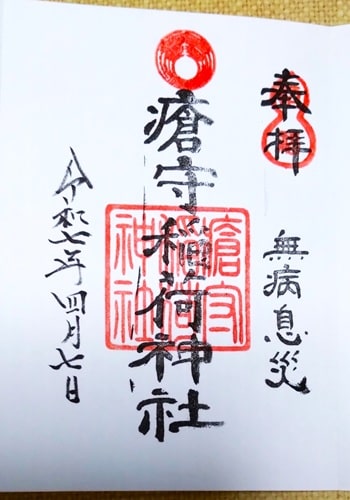 奉拝
無病息災
瘡守稲荷神社
瘡守稲荷神社
令和七年四月七日